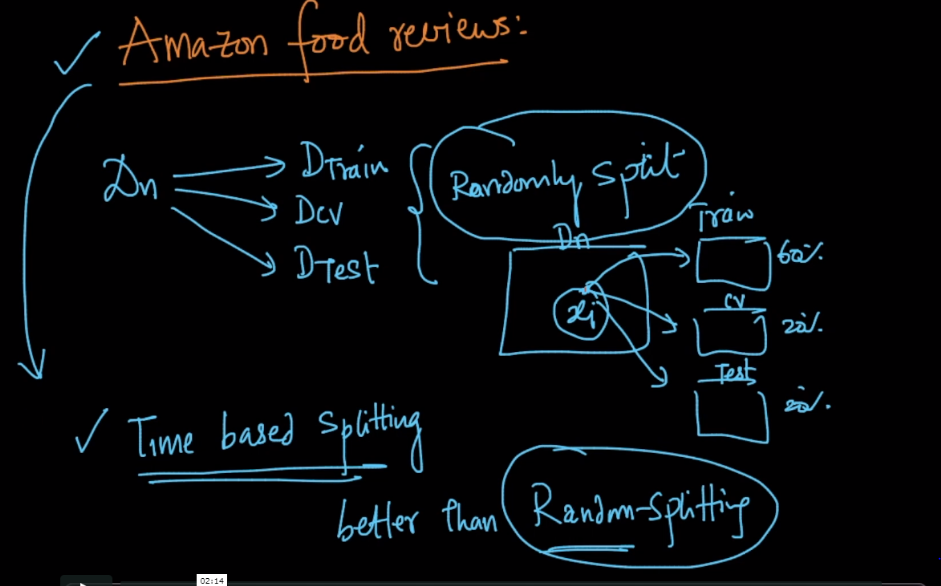 Amazon food reviews:
Dn
DTrain
DCV
DTest
Randomly split
Dn
xi
Train
60%
CV
20%
Test
20%
Time based splitting
better than Random-splitting
02:14